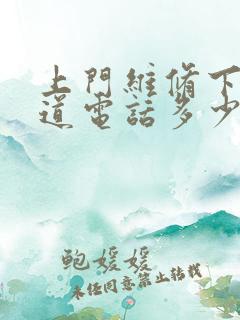 上門維脩下
道電話多少
鲍媛媛
未经同意禁止转载